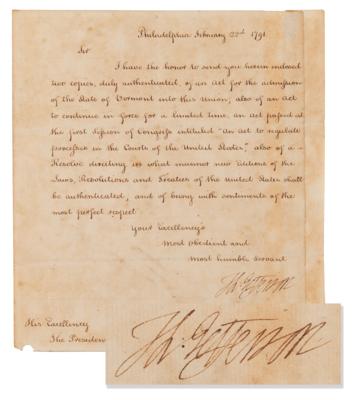 Philadelphia February 22d 1791
Sir
I have the honor to send you herein inclosed
two copies, duly authenticated, of an Act for the admission
of the State of Vermont into this Union; also of an Act
to continue in force for a limited time, an act passed at
the first Session of Congress intituled "An act to regulate
processes in the Courts of the United States", also of a
Resolve directing in what manner new Editions of the
Laws, Resolutions and Treaties of the United States shall
be authenticated, and of being with sentiments of the
most perfect respect
Your Excellency's
Most Obedient and
Most humble Servant
Th: Jefferson
His Excellency
The President
Th: Jefferson